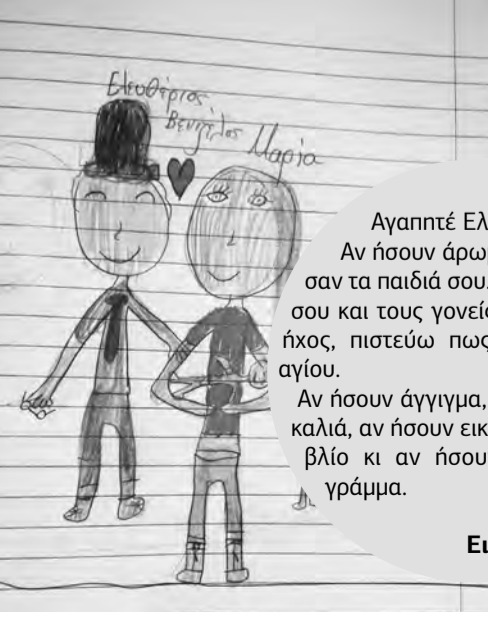 Ελευθέριος
Βενιζέλος Μαρία
Αγαπητέ Ελ
Αν ήσουν άρω
σαν τα παιδιά σου.
σου και τους γονείς
ήχος, πιστεύω πως
αγίου.
Αν ήσουν άγγιγμα,
καλιά, αν ήσουν εικ
βλίο κι αν ήσου
γράμμα.
Ει